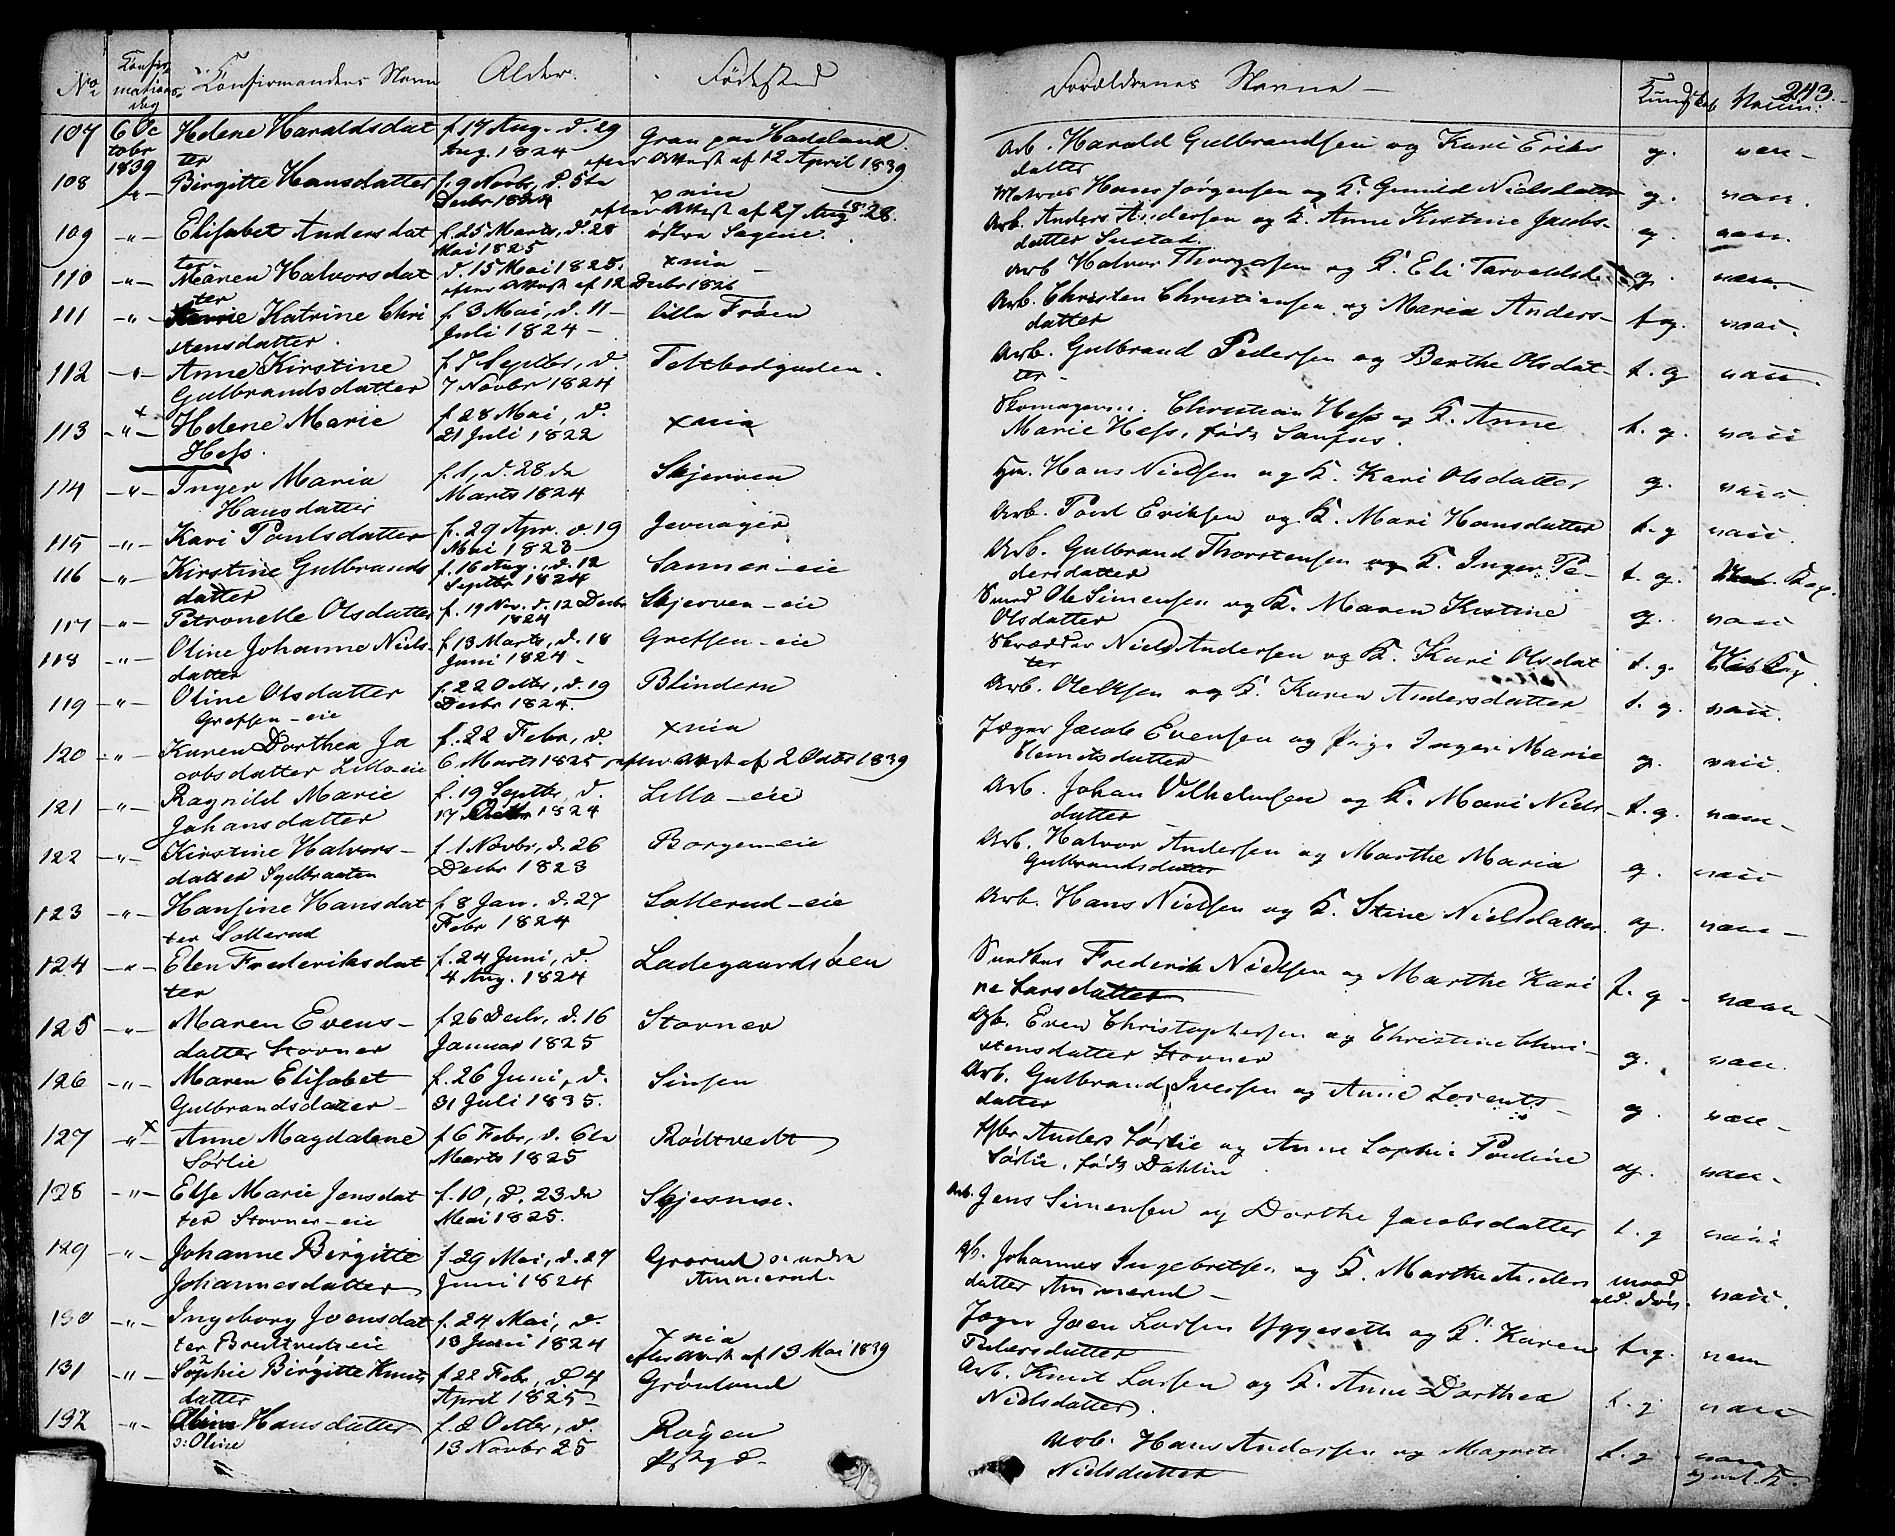 No
Confirmations Dag
Confirmandens Navn
Alder.
Fødested
Forældrenes Navne
Kundskab
Vaccin:
243.
107 6 Octobr 1839 Helene Haraldsdatter f. 17 Aug. d. 29 Aug. 1824 Gran paa Hadeland. efter Attest af 12 April 1839 Arb. Harald Gulbrandsen og Kari Eriksdatter g. vac
108 -"- Birgitte Hansdatter f. 9 Novbr, d. 5te Decbr 1824 xnia efter Attest af 27 Aug 1828. Matros Hans Jørgensen og K. Gunild Nielsdatter g. vac.
109 -"- Elisabet Andersdatter f. 25 Marts, d. 28 Mai 1825 østre Sagene. Arb. Anders Andersen og K. Anne Kirstine Jacobsdatter g. vac.
110 -"- Maren Halvorsdatter d. 15 Mai 1825. efter Attest af 12 Decbr 1826 xnia Arb Halvor Thorgersen og K. Eli g. vac.
111 -"- Katrine Christensdatter. f. 3 Mai, d. 11 Juli 1824 lille Frøen Arb. Christen Christiansen og Maria Andersdatter t g. vac.
112 -"- Anne Kirstine Gulbrandsdatter f. 7 Septbr, d. 7 Novbr 1824 Teltbodgaden. Arb. Gulbrand Pedersen og Berthe Olsdatter t. g vac.
113 -"- Helene Marie Hess. f. 28 Mai, d. 21 Juli 1822 xnia Skomagersv. Christian Hess og K. Anne Marie Hess, født g. vac
114 -"- Inger Maria Hansdatter f. 1, d. 28de Marts 1824 Skjerven Hm. Hans Nielsen og K. Kari Olsdatter g. vac
115 -"- Kari Poulsdatter f. 29 Apr. d. 19 Mai 1823 Jevnager Arb. Poul Eriksen og K. Mari Hansdatter t. g vac.
116 -"- Kirstine Gulbrandsdatter f. 16 Aug., d. 12 Septbr 1824 Sanner-eie Arb. Gulbrand Thorstensen og K. Inger Pedersdatter t. g. Kop.
117 -"- Petronelle Olsdatter f. 19 Nov. d. 12 Decbr 1824 Skjerven-eie Smed Ole Simensen og K. Maren Kirstine Olsdatter g. vac
118 -"- Oline Johanne Nielsdatter f. 13 Marts, d. 18 Juni 1824 Grefsen-eie Skrædder Niels Andersen og K. Kari Olsdatter t. g. Kop.
119 -"- Oline Olsdatter Grefsen-eie f. 22 Octbr, d. 19 Decbr 1824. Blindern Arb. Ole Olsen og K. Karen Andersdatter t. g. vac.
120 -"- Karen Dorthea Jacobsdatter Lilloeeie f. 22 Febr, d. 6 Marts 1825 xnia efter Attest af 2 Octbr 1839 Jæger Jacob Evensen og Pige Inger Marie Clemetsdatter g. vac.
121 -"- Ragnild Marie Johansdatter f. 19 Septbr, d. 17 Octbr 1824 Lillo-eie Arb. Johan Vilhelmsen og K. Mari Nielsdatter t. g. vac
122 -"- Kirstine Halvorsdatter f. 1 Novbr, d. 26 Decbr 1823 Borgen-eie Arb. Halvor Andersen og Marthe Maria Gulbrandsdatter g. vac
123 -"- Hansine Hansdatter Sollerud f. 8 Jan. d. 27 Febr 1824 Sollerud-eie Arb. Hans Nielsen og K. Stine Nielsdatter g. vac
124 -"- Elen Frederiksdatter f. 24 Juni, d. 4 Aug. 1824 Ladegaardsøen Frederik Nielsen og Marthe Karine Larsdatter t. g. vac
125 -"- Maren Evensdatter Stovner f. 26 Decbr, d. 16 Januar 1825 Stovner Gb. Even Christophersen og Christine Christensdatter Stovner g. vac.
126 -"- Maren Elisabet Gulbrandsdatter f. 26 Juni, d. 31 Juli 1835. Sinsen Arb. Gulbrand Iversen og Anne Lorentsdatter g. vac
127 -"- Anne Magdalene Sørlie f. 6 Febr, d. 6te Marts 1825 Rødtvedt Anders Sørlie og Anne Sophie Pouline Sørlie, født Dahlin g. vac
128 -"- Else Marie Jensdatter Stovner-eie f. 10, d. 23de Mai 1825. Arb. Jens Simensen og Dorthe Jacobsdatter t. g vac
129 -"- Johanne Birgitte Johannesdatter f. 29 Mai, d. 27 Juni 1824 Grorud Ammerud. Johannes Ingebretsen og K. Marthe Andersdatter Ammerud vac.
130 -"- Ingeborg Joensdatter Bredtvedt eie f. 24 Mai, d. 13 Juni 1824 xnia efter Attest af 13 Mai 1839 Jæger Joen Larsen Yggeseth og K. Karen Pedersdatter t. g. vac
131 -"- Sophie Birgitte Knutsdatter f. 22 Febr, d 4 April 1825 Grønland Arb. Knut Larsen og K. Anne Dorthea Nielsdatter. t. g vac
132 -"- Hansdatter ɔ: Oline f. 2 Octbr, d. 13 Novbr 25 Røgen Arb. Hans Andersen og Magrete Nielsdatter t. g vac